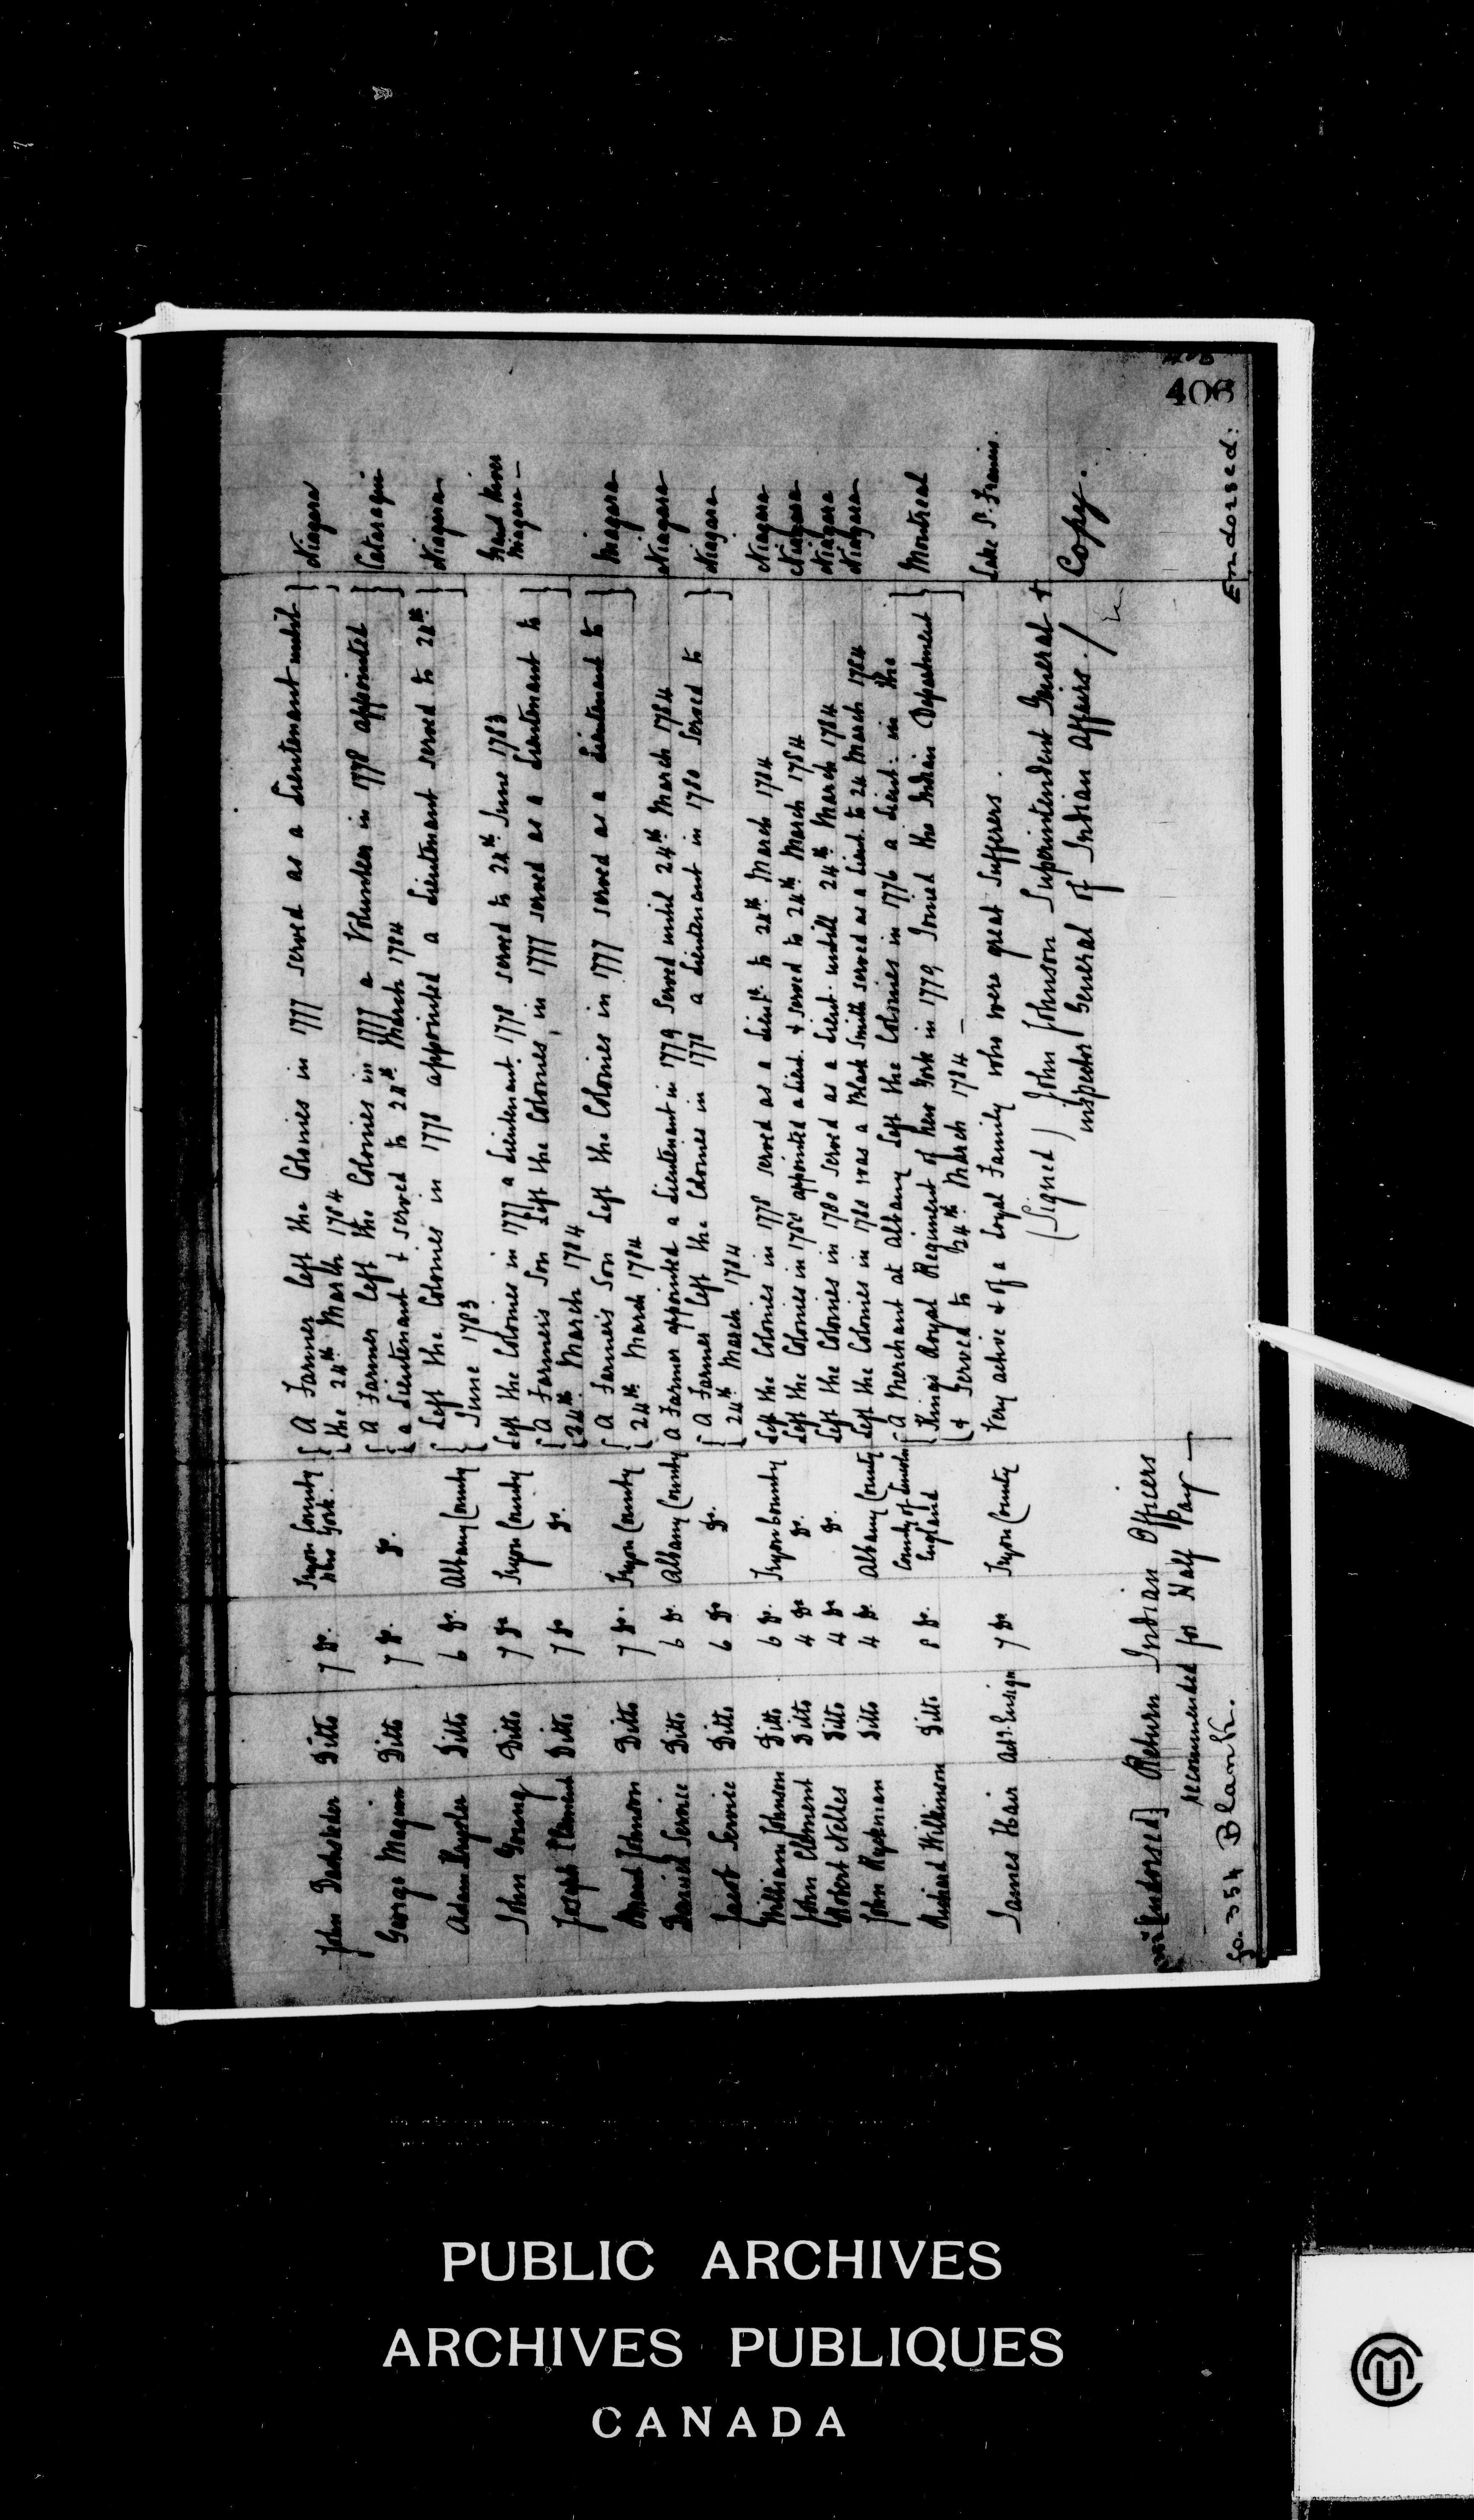 408
John Dachsteder Ditto 7 do. Tryon County New York. { A Farmer left the Colonies in 1777 served as a Lieutenant until } Niagara
{ the 24th March 1784
George Magin Ditto 7 do. do. { A Farmer left the Colonies in 1777 a Volunteer in 1778 appointed } Cataraqui
{ a Lieutenant & served to 24th March 1784 }
Adam Ditto 6 do. Albany County { Left the Colonies in 1778 appointed a Lieutenant served to 24th } Niagara
{ June 1783
John Young Ditto 7 do Tryon County Left the Colonies in 1777 a Lieutenant 1778 served to 24th June 1783 Grand River Niagara —
Joseph Clement Ditto 7 do do. { A Farmer's Son Left the Colonies in 1777 served as a Lieutenant to }
{ 24th March 1784 }
Brant Johnson Ditto 7 do. Tryon County { A Farmer's Son Left the Colonies in 1777 served as a Lieutenant to } Niagara
{ 24th March 1784
Daniel Service Ditto 6 do. Albany County A Farmer appointed a Lieutenant in 1779 Served until 24th March 1784 Niagara
Jacob Service Ditto 6 do do. { A Farmer left the Colonies in 1778 a Lieutenant in 1780 Served to } Niagara
{ 24th March 1784
William Johnson Ditto 6 do. Tryon County Left the Colonies in 1778 served as a Lieut. to 24th March 1784 Niagara
John Clement Ditto 4 do do. Left the Colonies in 1780 appointed a Lieut. & served to 24th March 1784 Niagara
Robert Nelles Ditto 4 do do. Left the Colonies in 1780 served as a Lieut. untill 24th March 1784 Niagara
John Ryckman Ditto 4 do. Albany County Left the Colonies in 1780 was a Black Smith served as a Lieut. to 24 March 1784 Niagara
Richard Wilkinson Ditto 8 do. County of Lincoln England { A Merchant at Albany Left the Colonies in 1776 a Lieut: in the } Montreal
{ Kings Royal Regiment of New York in 1779 Joined the Indian Department
{ & Served to 24th March 1784 —
James Hair Act. Ensign 7 do Tryon County Very active & of a Loyal Family who were great Sufferers. Lake St. Francis.
(Signed) John Johnson Superintendent General &
inspector General of Indian Affairs./ Copy.
[Endorsed] Return Indian Officers
recommended for Half Pay —
fo. 354 Blank. Endorsed:
PUBLIC ARCHIVES
ARCHIVES PUBLIQUES
CANADA